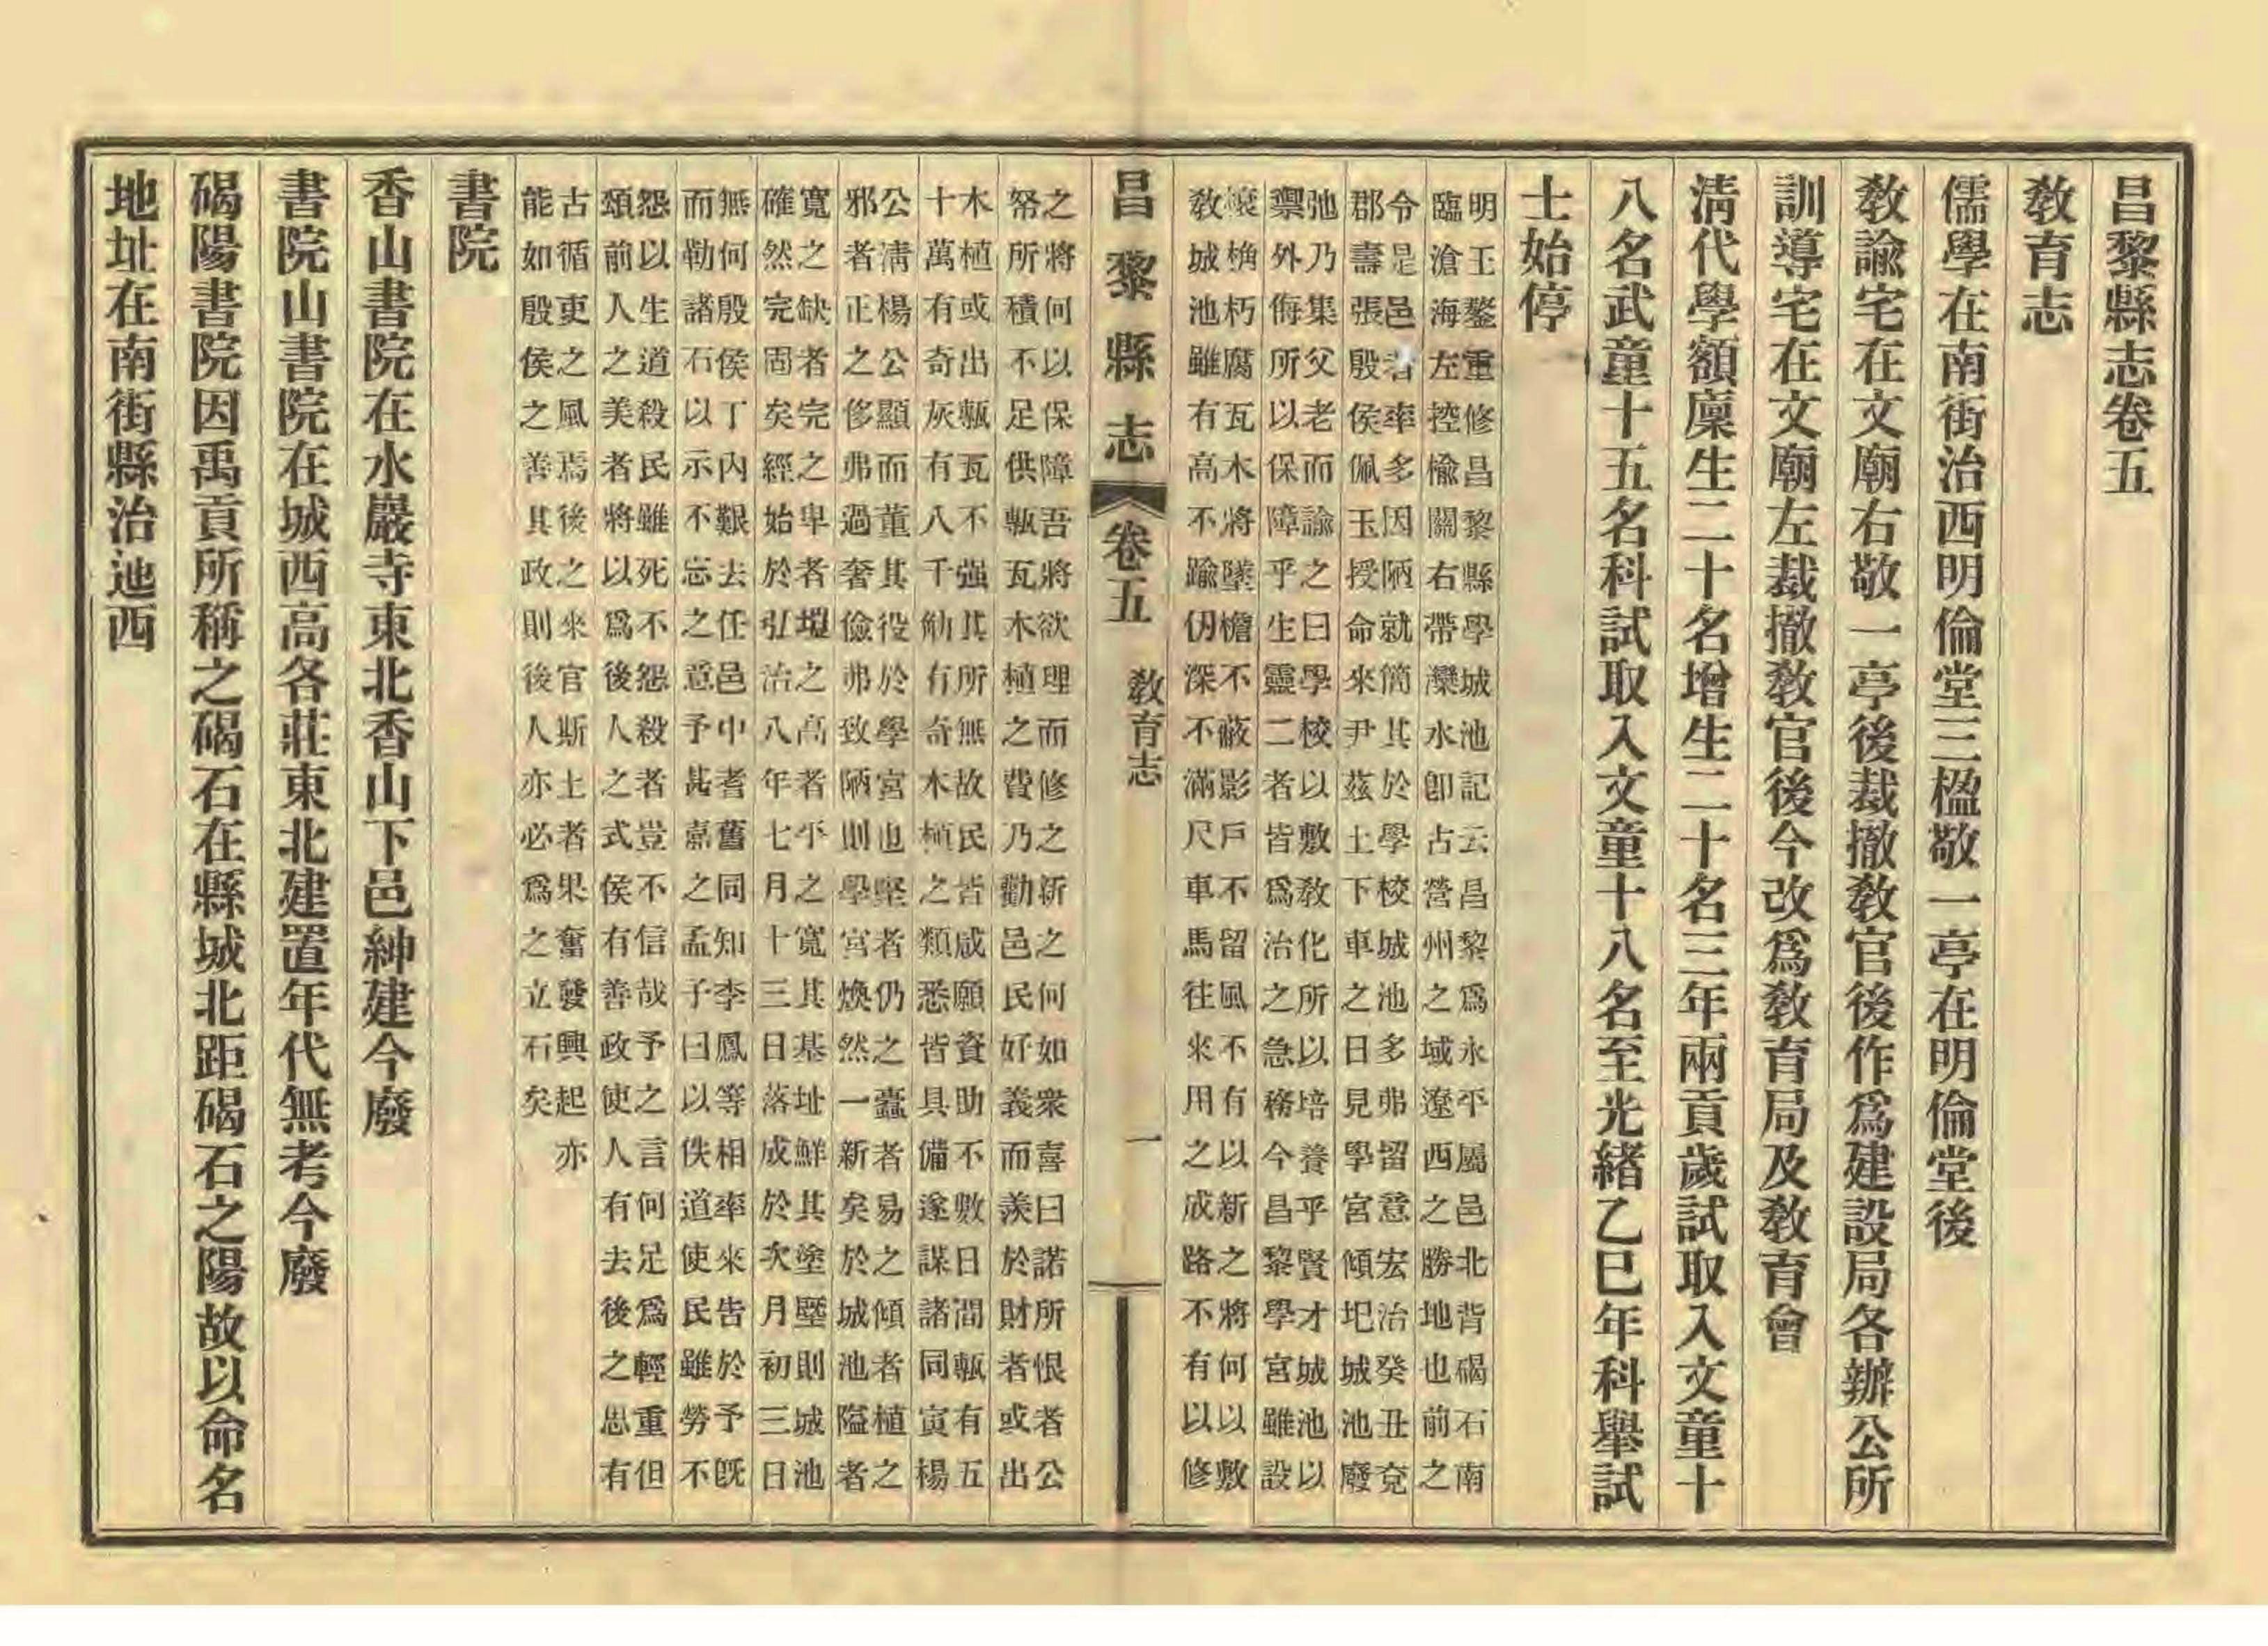 昌黎縣志卷五
教育志
儒學在南街治西明倫堂三楹敬一亭在明倫堂後
教諭宅在文廟右敬一亭後裁撤教官後作爲建設局各辦公所
訓導宅在文廟左裁撤教官後今改爲教育局及教育會
淸代學額廩生二十名增生二十名三年兩貢歲試取入文童十
八名武童十五名科試取入文童十八名至光緖乙巳年科舉試
士始停
明王鏊重修昌黎縣學城池記云昌黎爲永平屬邑北背碣石南
臨滄海左控楡關右帶灤水卽古營州之域遼西之勝地也前之
令是邑者率多因陋就簡其於學校城池多弗留意宏治癸丑兗
郡壽張殷侯佩玉授命來尹茲土下車之日見學宮傾圯城池廢
弛乃集父老而諭之曰學校以敷教化所以培養乎賢才城池以
禦外侮所以保障乎生靈二者皆爲治之急務今昌黎學宮雖設
榱桷朽腐瓦木將墜檐不蔽影戶不留風不有以新之將何以敷
教城池雖有高不踰仞深不滿尺車馬往來用之成路不有以修
之將何以保障吾將欲理而修之新之何如衆喜曰諾所恨者公
帑所積不足供瓴瓦木植之費乃勸邑民好義而羨於財者或出
木植或出瓴瓦不强其所無故民皆咸願資助不數日間瓴有五
十萬有奇灰有八千觔有奇木植之類悉皆具備遂謀諸同寅楊
公淸楊公顯而董其役於學宮也堅者仍之蠹者易之傾者植之
邪者正之侈弗過奢儉弗致陋則學宮煥然一新矣於城池隘者
寬之缺者完之卑者壋之高者平之寬其基址鮮其塗墍則城池
確然完固矣經始於弘治八年七月十三日落成於次月初三日
無何殷侯丁內艱去任邑中耆舊同知李鳳等相率來告於予旣
而勒諸石以示不忘之意予甚嘉之孟子曰以佚道使民雖勞不
怨以生道殺民雖死不怨殺者豈不信哉予之言何足爲輕重但
頌前人之美者將以爲後人之式侯有善政使人有去後之思有
古循吏之風焉後之來官斯土者果奮發興起亦
能如殷侯之善其政則後人亦必爲之立石矣
書院
香山書院在水巖寺東北香山下邑紳建今廢
書院山書院在城西高各莊東北建置年代無考今廢
碣陽書院因禹貢所稱之碣石在縣城北距碣石之陽故以命名
地址在南街縣治迆西
昌黎縣志
卷五
教育志
一